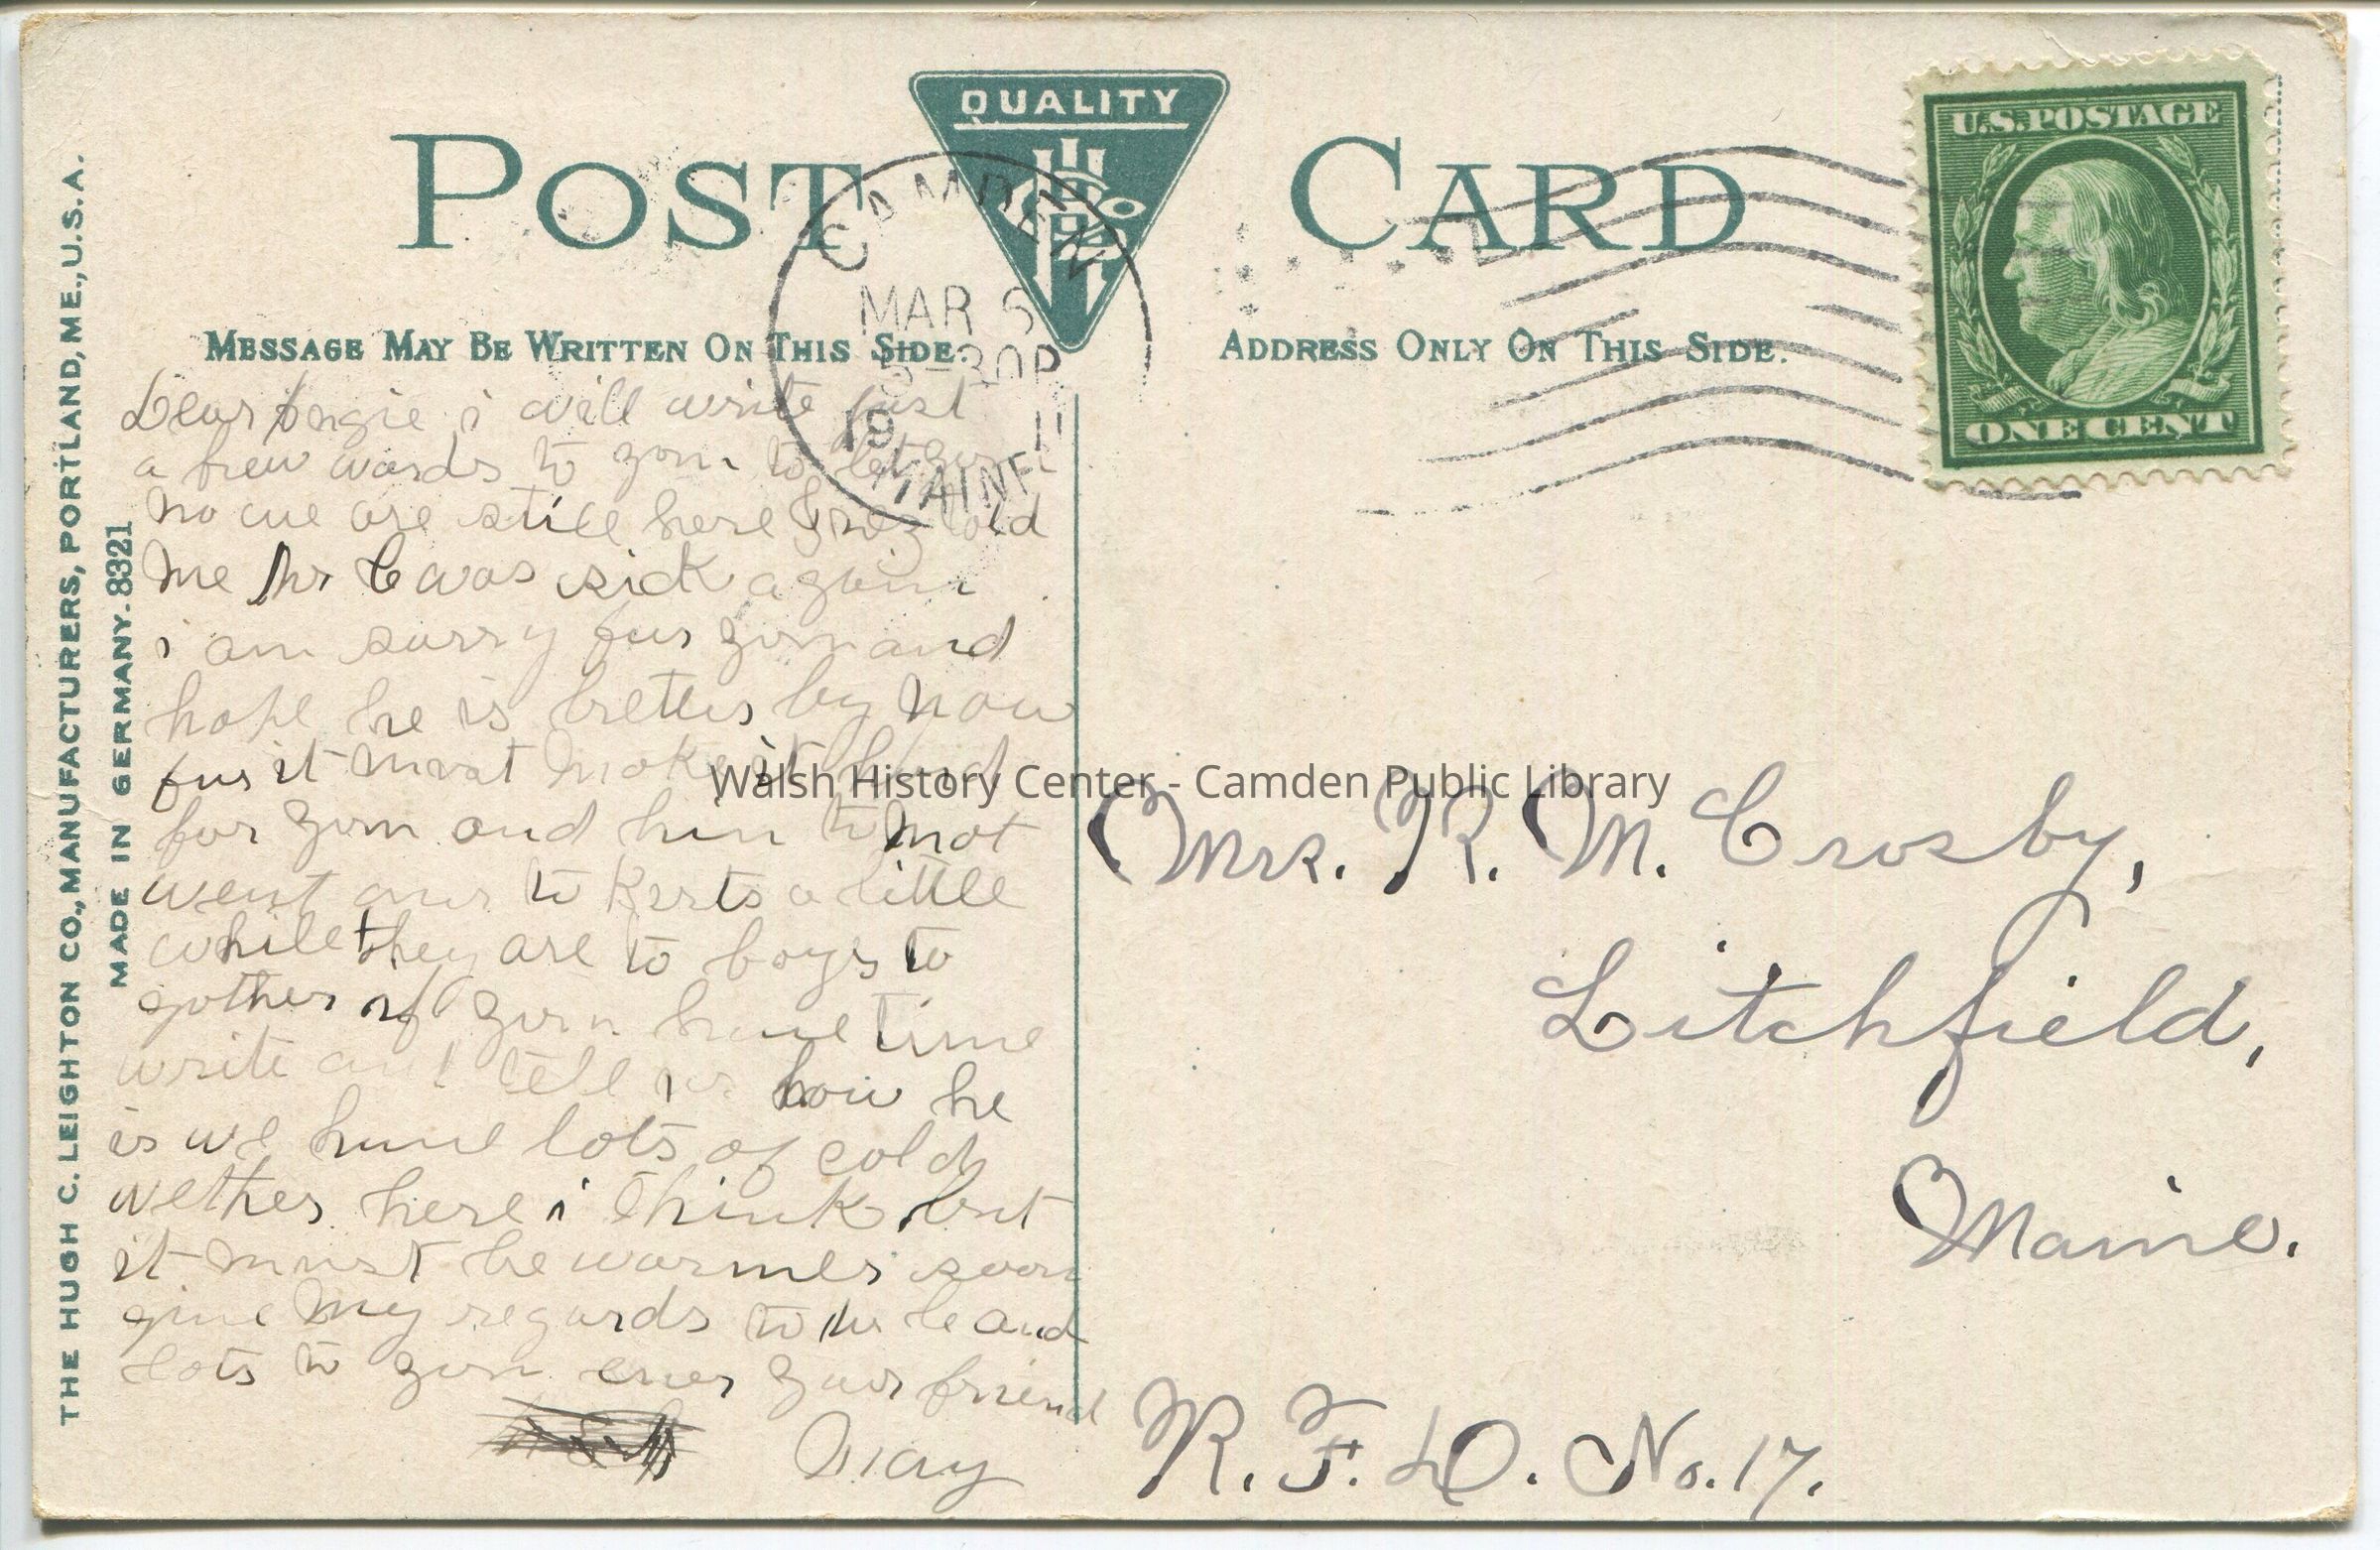 POST CARD
QUALITY
H C L Co
CAMDEN
MAR 6
5-30P
19 11
MAINE
U.S. POSTAGE
ONE CENT
MESSAGE MAY BE WRITTEN ON THIS SIDE.
ADDRESS ONLY ON THIS SIDE.
THE HUGH C. LEIGHTON CO., MANUFACTURERS, PORTLAND, ME., U.S.A.
MADE IN GERMANY. 8321
Dear Angie i will write just
a few words to you to let you
no we are still here told
me Mr C was sick again
i am sorry fur you and
hope he is better by now
fur it must make it hard
for you and him to not
went over to a little
while they are to boys to
gother if you have time
write and tell us how he
is we have lots of cold
wether here i think but
it must be warmer soon
give my regards to Mr C and
lots to you ever your friend
May
Walsh History Center - Camden Public Library
Mrs. R. M. Crosby,
Litchfield,
Maine.
R. F. D. No. 17.